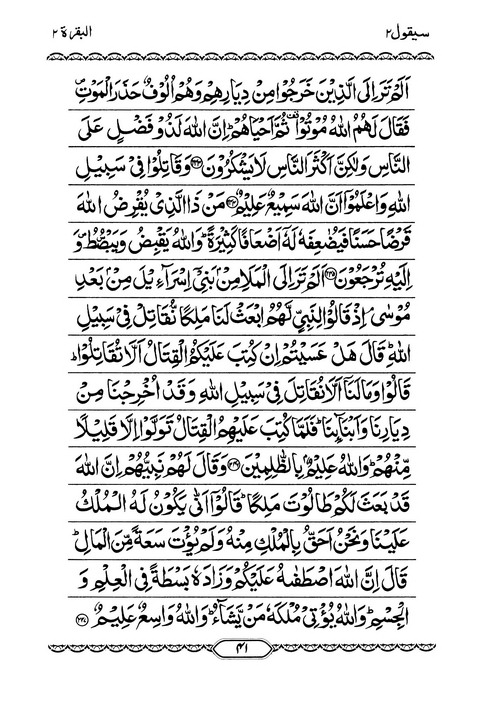 سيقول٢ البقرة ٢
اَلَمْ تَرَ اِلَى الَّذِيْنَ خَرَجُوْا مِنْ دِيَارِهِمْ وَهُمْ اُلُوْفٌ حَذَرَ الْمَوْتِ ۪
فَقَالَ لَهُمُ اللّٰهُ مُوْتُوْا ۫ ثُمَّ اَحْيَاهُمْ ؕ اِنَّ اللّٰهَ لَذُوْ فَضْلٍ عَلَى
النَّاسِ وَلٰكِنَّ اَكْثَرَ النَّاسِ لَا يَشْكُرُوْنَ ﴿۲۴۳﴾ وَقَاتِلُوْا فِىْ سَبِيْلِ
اللّٰهِ وَاعْلَمُوْۤا اَنَّ اللّٰهَ سَمِيْعٌ عَلِيْمٌ ﴿۲۴۴﴾ مَنْ ذَا الَّذِىْ يُقْرِضُ اللّٰهَ
قَرْضًا حَسَنًا فَيُضٰعِفَهٗ لَهٗۤ اَضْعَافًا كَثِيْرَةً ؕ وَاللّٰهُ يَقْبِضُ وَيَبْصُۜطُ ۪ وَ
اِلَيْهِ تُرْجَعُوْنَ ﴿۲۴۵﴾ اَلَمْ تَرَ اِلَى الْمَلَاِ مِنْۢ بَنِىْۤ اِسْرَآءِيْلَ مِنْۢ بَعْدِ
مُوْسٰى ۘ اِذْ قَالُوْا لِنَبِىٍّ لَّهُمُ ابْعَثْ لَنَا مَلِكًا نُّقَاتِلْ فِىْ سَبِيْلِ
اللّٰهِ ؕ قَالَ هَلْ عَسَيْتُمْ اِنْ كُتِبَ عَلَيْكُمُ الْقِتَالُ اَلَّا تُقَاتِلُوْا ؕ
قَالُوْا وَمَا لَنَاۤ اَلَّا نُقَاتِلَ فِىْ سَبِيْلِ اللّٰهِ وَقَدْ اُخْرِجْنَا مِنْ
دِيَارِنَا وَاَبْنَآئِنَا ؕ فَلَمَّا كُتِبَ عَلَيْهِمُ الْقِتَالُ تَوَلَّوْا اِلَّا قَلِيْلًا
مِّنْهُمْ ؕ وَاللّٰهُ عَلِيْمٌۢ بِالظّٰلِمِيْنَ ﴿۲۴۶﴾ وَقَالَ لَهُمْ نَبِيُّهُمْ اِنَّ اللّٰهَ
قَدْ بَعَثَ لَكُمْ طَالُوْتَ مَلِكًا ؕ قَالُوْۤا اَنّٰى يَكُوْنُ لَهُ الْمُلْكُ
عَلَيْنَا وَنَحْنُ اَحَقُّ بِالْمُلْكِ مِنْهُ وَلَمْ يُؤْتَ سَعَةً مِّنَ الْمَالِ ؕ
قَالَ اِنَّ اللّٰهَ اصْطَفٰىهُ عَلَيْكُمْ وَزَادَهٗ بَسْطَةً فِى الْعِلْمِ وَ
الْجِسْمِ ؕ وَاللّٰهُ يُؤْتِىْ مُلْكَهٗ مَنْ يَّشَآءُ ؕ وَاللّٰهُ وَاسِعٌ عَلِيْمٌ ﴿۲۴۷﴾
۴۱